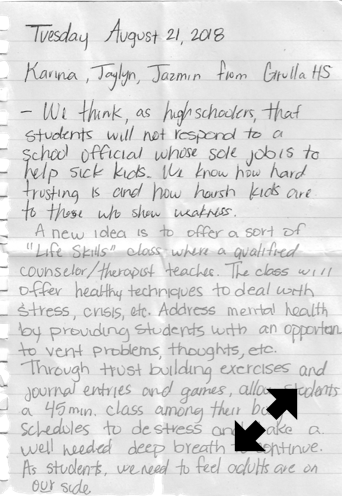 Tuesday August 21, 2018
Karina, Jaylyn, Jazmin from Grulla HS
- We think, as highschoolers, that
students will not respond to a
school official whose sole job is to
help sick kids. We know how hard
trusting is and how harsh kids are
to those who show weakness.
A new idea is to offer a sort of
"Life Skills" class where a qualified
counselor/therapist teaches. The class will
offer healthy techniques to deal with
stress, crisis, etc. Address mental health
by providing students with an opportun
to vent problems, thoughts, etc.
Through trust building exercises and
journal entries and games, students
a 45 min. class among their
schedules to destress
well needed deep breath
As students, we need to feel adults are on
our side